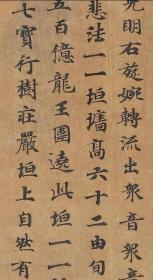 光明右旋婉轉流出衆音衆音
悲法一一垣墻髙六十二由旬
五百億龍王圍遶此垣一一
七寶行樹莊嚴垣上自然有